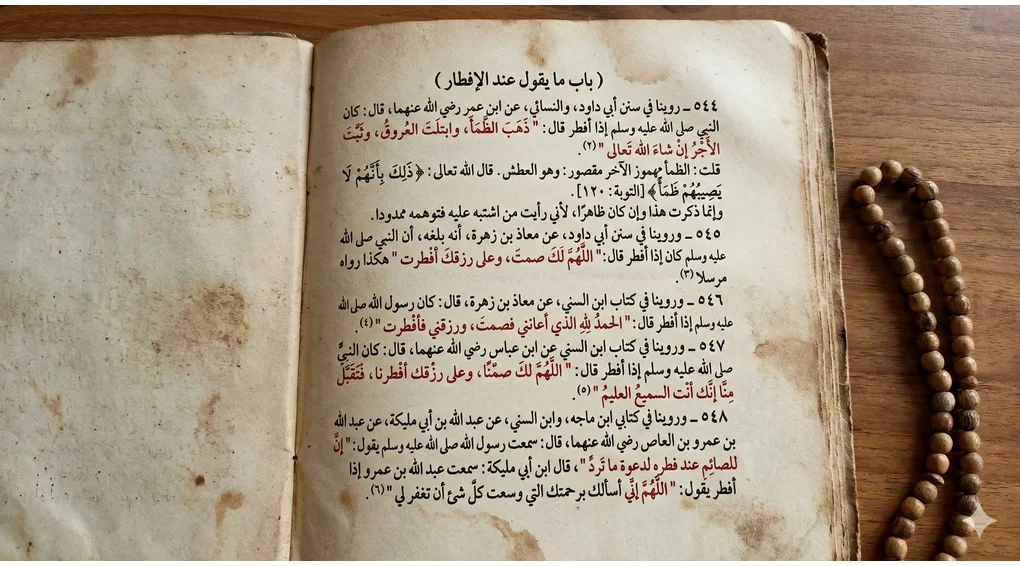 ( باب ما يقول عند الإفطار )
٥٤٤ ـ روينا في سنن أبي داود، والنسائي، عن ابن عمر رضي الله عنهما، قال: كان
النبي صلى الله عليه وسلم إذا أفطر قال: " ذَهَبَ الظَّمَأُ، وابتلَتَ العُروقُ، وثَبَّتَ
الأَجْرُ إنْ شاءَ الله تَعالى " (٢).
قلت: الظمأ مهموز الآخر مقصور: وهو العطش. قال الله تعالى: ﴿ذَلِكَ بِأَنَّهُمْ لَا
يَصِيبُهُمْ ظَمَأٌ﴾ [التوبة: ١٢٠].
وإنما ذكرت هذا وإن كان ظاهرًا، لأني رأيت من اشتبه عليه فتوهمه ممدودا.
٥٤٥ ـ وروينا في سنن أبي داود، عن معاذ بن زهرة، أنه بلغه، أن النبي صلى الله
عليه وسلم كان إذا أفطر قال: " اللَّهُمَّ لَكَ صمتَ، وعلى رزقكَ أفطرت " هكذا رواه
مرسلا (٣).
٥٤٦ ـ وروينا في كتاب ابن السني، عن معاذ بن زهرة، قال: كان رسول الله صلى الله
عليه وسلم إذا أفطر قال: " الحمدُ للهِ الذي أعانني فصمتَ، ورزقني فأفْطرت " (٤).
٥٤٧ ـ وروينا في كتاب ابن السني عن ابن عباس رضي الله عنهما، قال: كان النبيِّ
صلى الله عليه وسلم إذا أفطر قال: " اللَّهُمَّ لكَ صمْنًا، وعلى رزْقك أفْطرنا، فَتَقَبَّلَ
مِنَّا إنَّك أنْت السميعُ العليمُ " (٥).
٥٤٨ ـ وروينا في كتابي ابن ماجه، وابن السني، عن عبد الله بن أبي مليكة، عن عبد الله
بن عمرو بن العاص رضي الله عنهما، قال: سمعت رسول الله صلى الله عليه وسلم يقول: " إنَّ
للصائِمِ عند فطره لدعوة ما تَردِّ "، قال ابن أبي مليكة: سمعت عبد الله بن عمرو إذا
أفطر يقول: " اللَّهُمَّ إنِّي أسألك برحمتك التي وسعت كلَّ شئ أن تغفر لي " (٦).